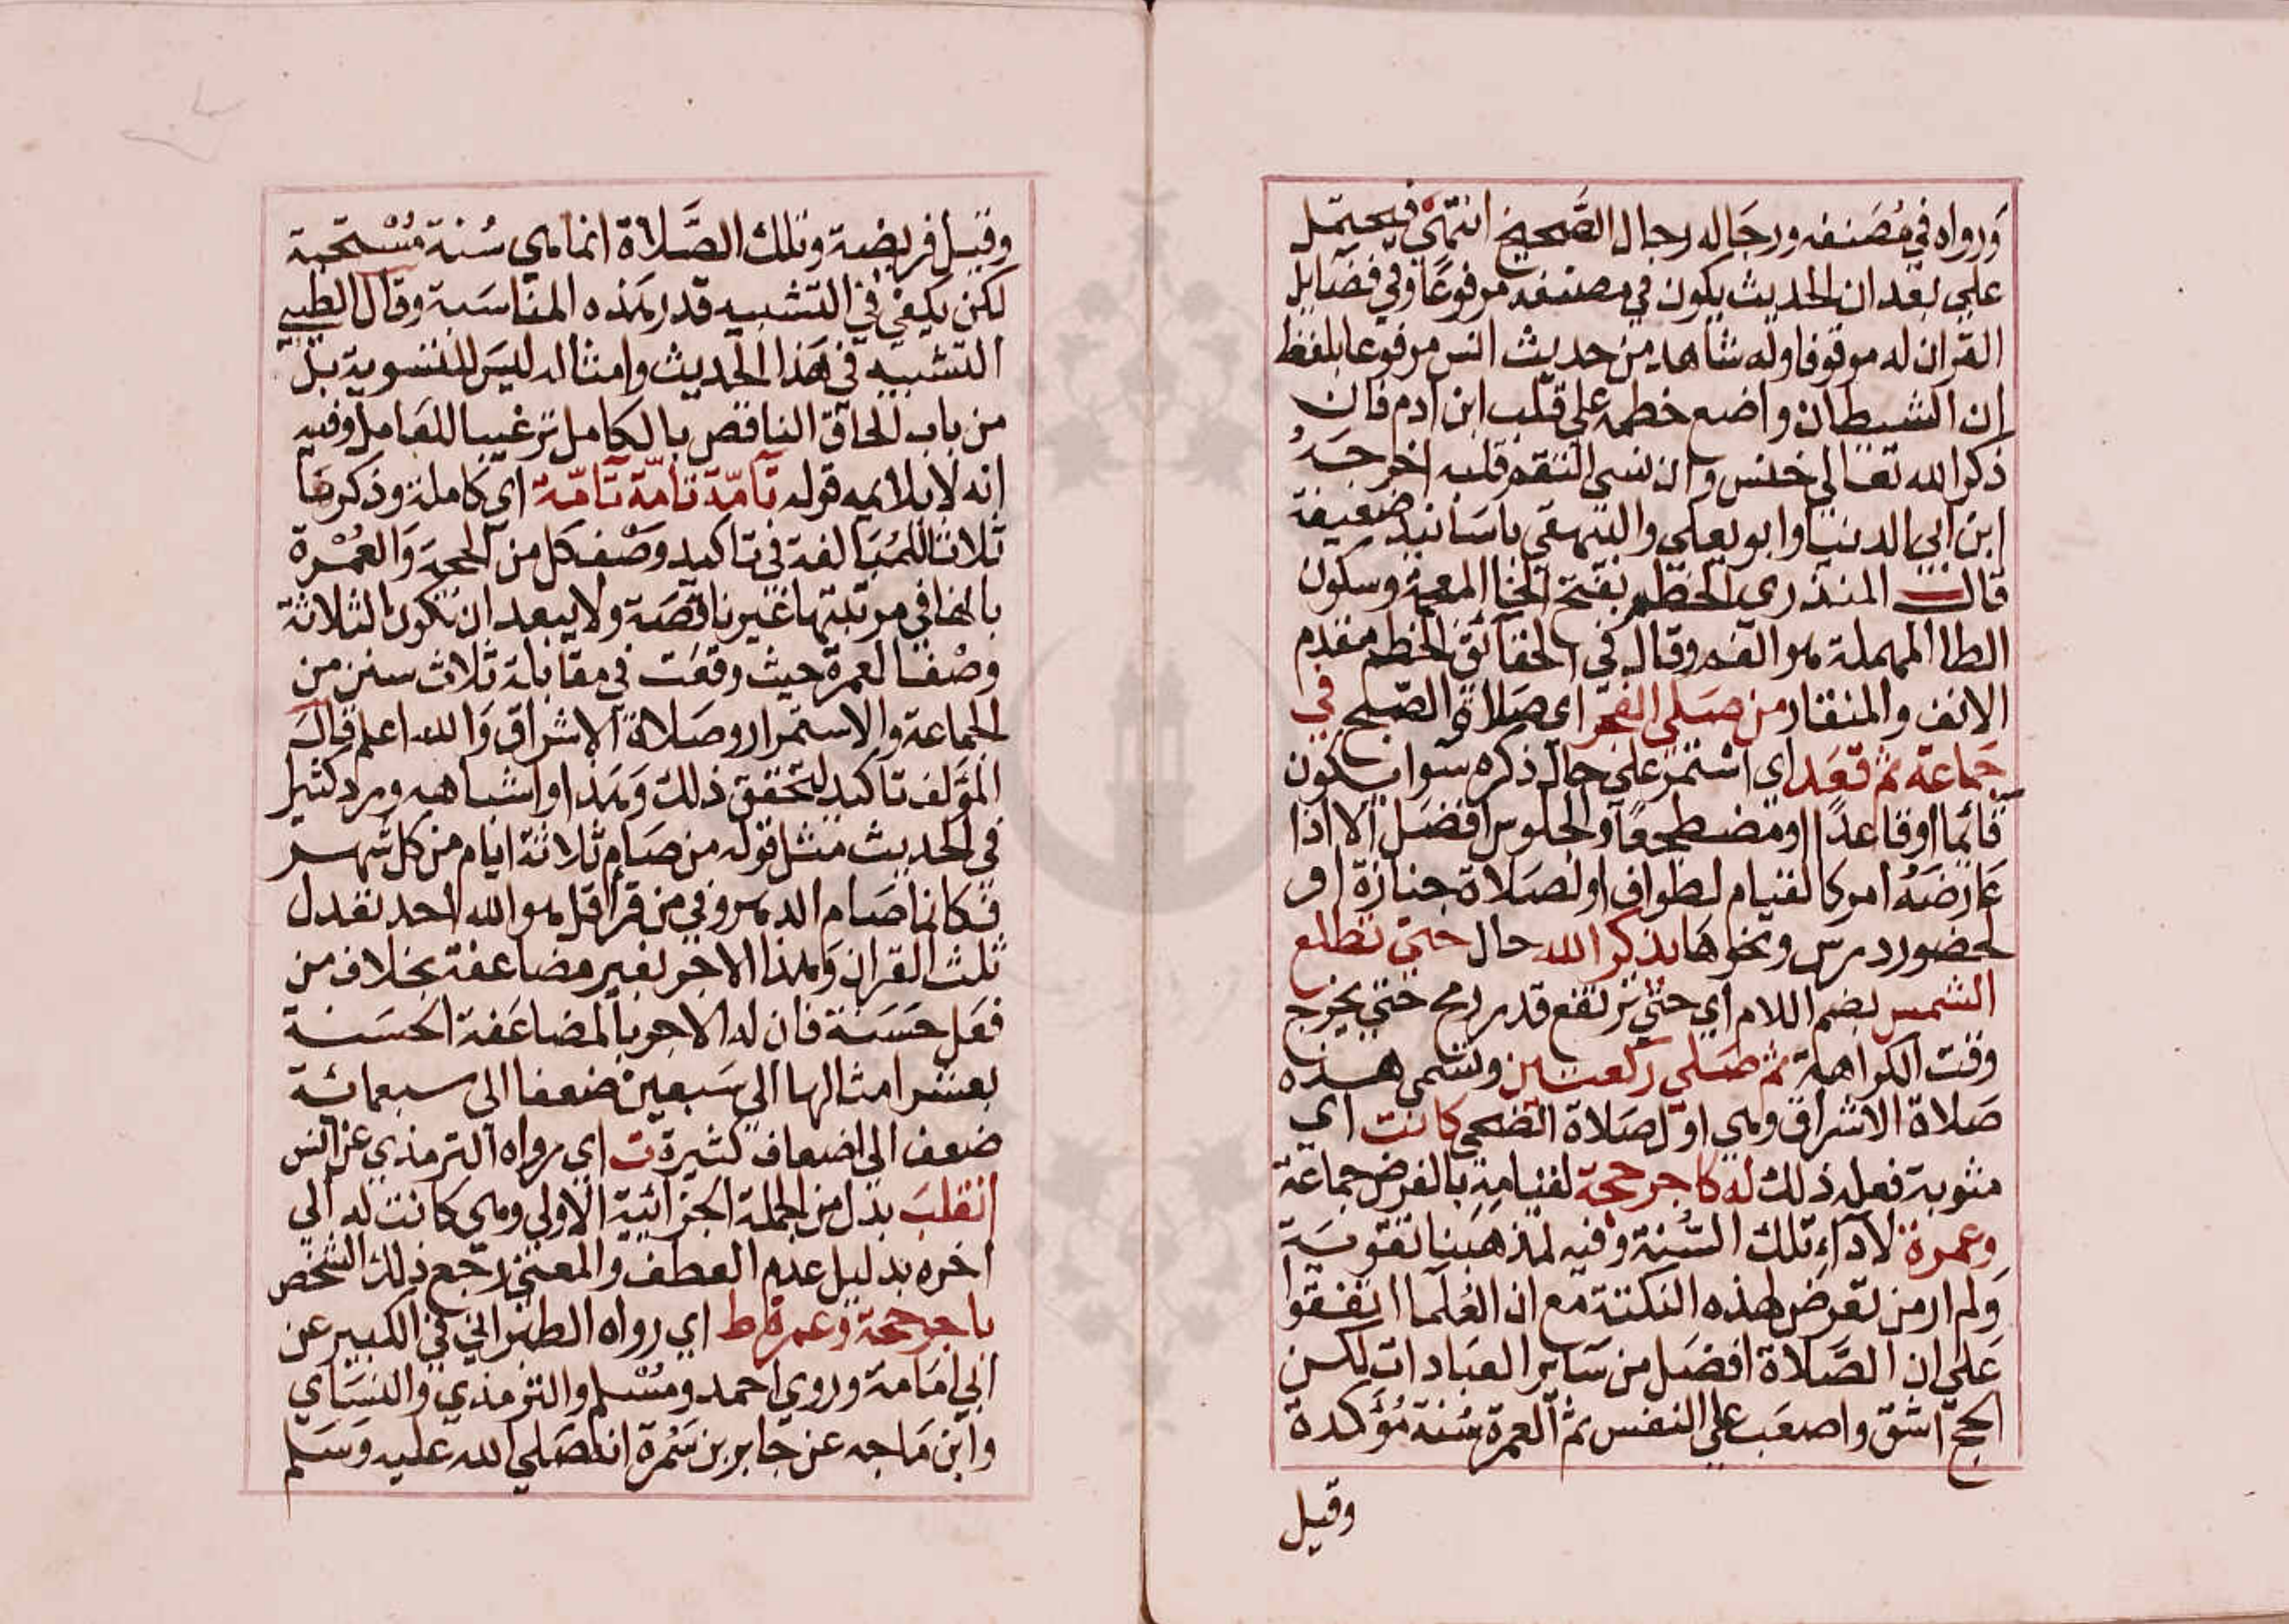 ورواه في مُصَنفه ورجَاله رجال الصَّحيح انتهَي فيحتمل
علي بعد ان الحديث يكون في مصنفه مرفوعًا وفي فضَايل
القران له موقوفا وله شاهد من حديث انس مرفوعا بلفظ
ان الشيطان واضع خطمه علي قلب ابن ادم فان
ذكر الله تعالي خنس وان نسي التقم قلبه اخرجَهُ
ابن ابي الدنيا وابو يعلي والبيهقي باسَانيد ضعيفة
قال المنذري الخطم بفتح الخا المعجمة وسكون
الطا المهملة هو الفم وقال في الحقائق الخطم مقدم
الانف والمنقار من صَلي الفجر اي صَلاة الصّبح في
جَماعة ثم قعَد اي استمَر علي حال ذكره سَوا يكون
قائما او قاعدًا او مضطجعًا والجلوس افضَل الا اذا
عَارضَهُ امر كالقيام لطواف او لصَلاة جنازة او
لحضور درس ونحوهَا يذكر الله حال حتي تطلع
الشمس بضم اللام اي حتي ترتفع قدر رمح حتي يخرج
وقت الكراهة ثم صَلي ركعتين وتسمي هذه
صَلاة الاشراق وهي اوّل صَلاة الضحي كانت اي
مثوبة فعله ذلك له كاجر حجة لقيامِهِ بالفرض جماعَة
وعمرة لادَاءِ تلك السُّنة وفيه لمذهَبنا تقويَة
ولم ار من تعرض لهذه النكتة مع ان العُلَما اتفقوا
عَلي ان الصَّلاة افضَل من سَاير العبَادات لكن
الحج اشق واصعَب علي النفس ثم العمرة سُنة مُؤكدة
وقيل
وقيل فريضة وتلك الصَّلاة انما هي سُنة مُسْتحبة
لكن يكفي في التشبيه قدر هَذه المناسَبة وقال الطيبي
التشبيه في هَذا الحديث وامثاله ليسَ للتسوية بل
من باب الحاق الناقص بالكامل ترغيبا للعَامل وفيه
انه لا يلايمه قوله تآمّة تآمّة تآمّة اي كاملة وذكرهَا
ثلاثا للمُبَالغة في تاكيد وَصْف كل من الحجة وَالعُمْرة
بانها في مرتبتها غير ناقصَة ولا يبعد ان تكون الثلاثة
وصْفا لعمرة حيث وقعَت في مقابلة ثلاث سنن من
الجمَاعة والاستمرار وصَلاة الاشراق وَالله اعلم قالَ
المؤَلف تاكيد لتحقق ذلك وَهَذا واشباهه ورد كثيرا
في الحديث مثل قوله من صَام ثلاثة ايام من كل شهر
فكانما صَام الدهر وفي من قرا قل هو الله احد تعدل
ثلث القران وَهذا الاجر بغير مضاعفة بخلاف من
فعَل حَسَنة فان له الاجر بالمضاعَفة الحسَنة
بعشر امثالها الي سَبعينْ ضعفا الي سبعمائة
ضعف الي اضعاف كثيرة ت اي رواه الترمذي عن انس
انقلبَ بدل من الجملة الجزائية الاولي وهي كانت له الي
اخره بدليل عدم العطف والمعني رجَع ذلك الشخص
باجر حجة وعمرة ط اي رواه الطبراني في الكبير عن
ابي امَامة وروي احمد ومُسْلم والترمذي والنسَاي
وابن مَاجه عن جابر بن سَمُرة انه صَلي الله عليه وَسَلم